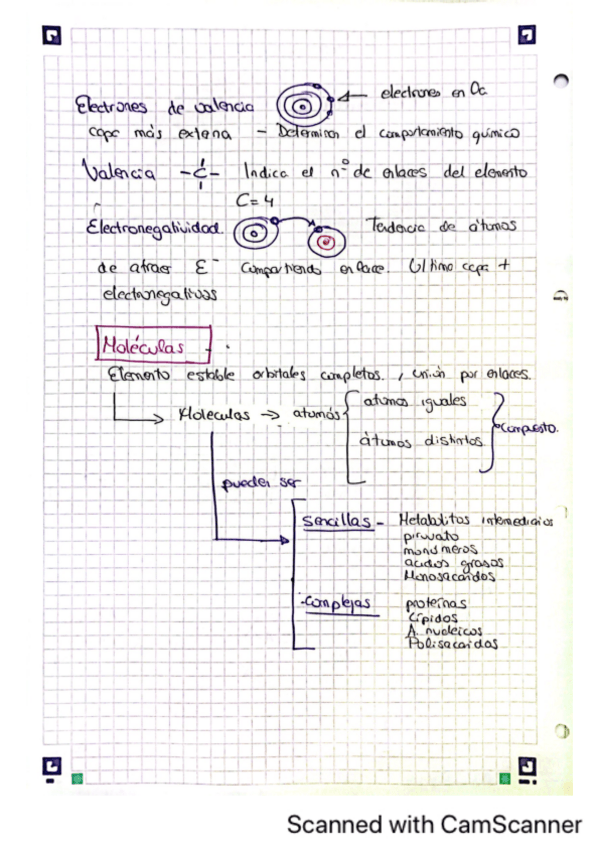 Electrones de valencia electrones en
capa más externa - Determinan el comportamiento químico
Valencia -C- Indica el nº de enlaces del elemento
C=4
Electronegatividad. Tendencia de átomos
de atraer E⁻ compartiendo enlace. Último capa +
electronegativos
Moléculas
Elemento estable orbitales completos., unión por enlaces.
Moleculas → atomós { atomos iguales
átomos distintos. } compuesto.
pueden ser
Sencillas - Metabolitos intermedicios
piruvato
monómeros
acidos grasos
Monosacaridos
-Complejas proteínas
Lípidos
A. nucleicos
Polisacaridos
Scanned with CamScanner